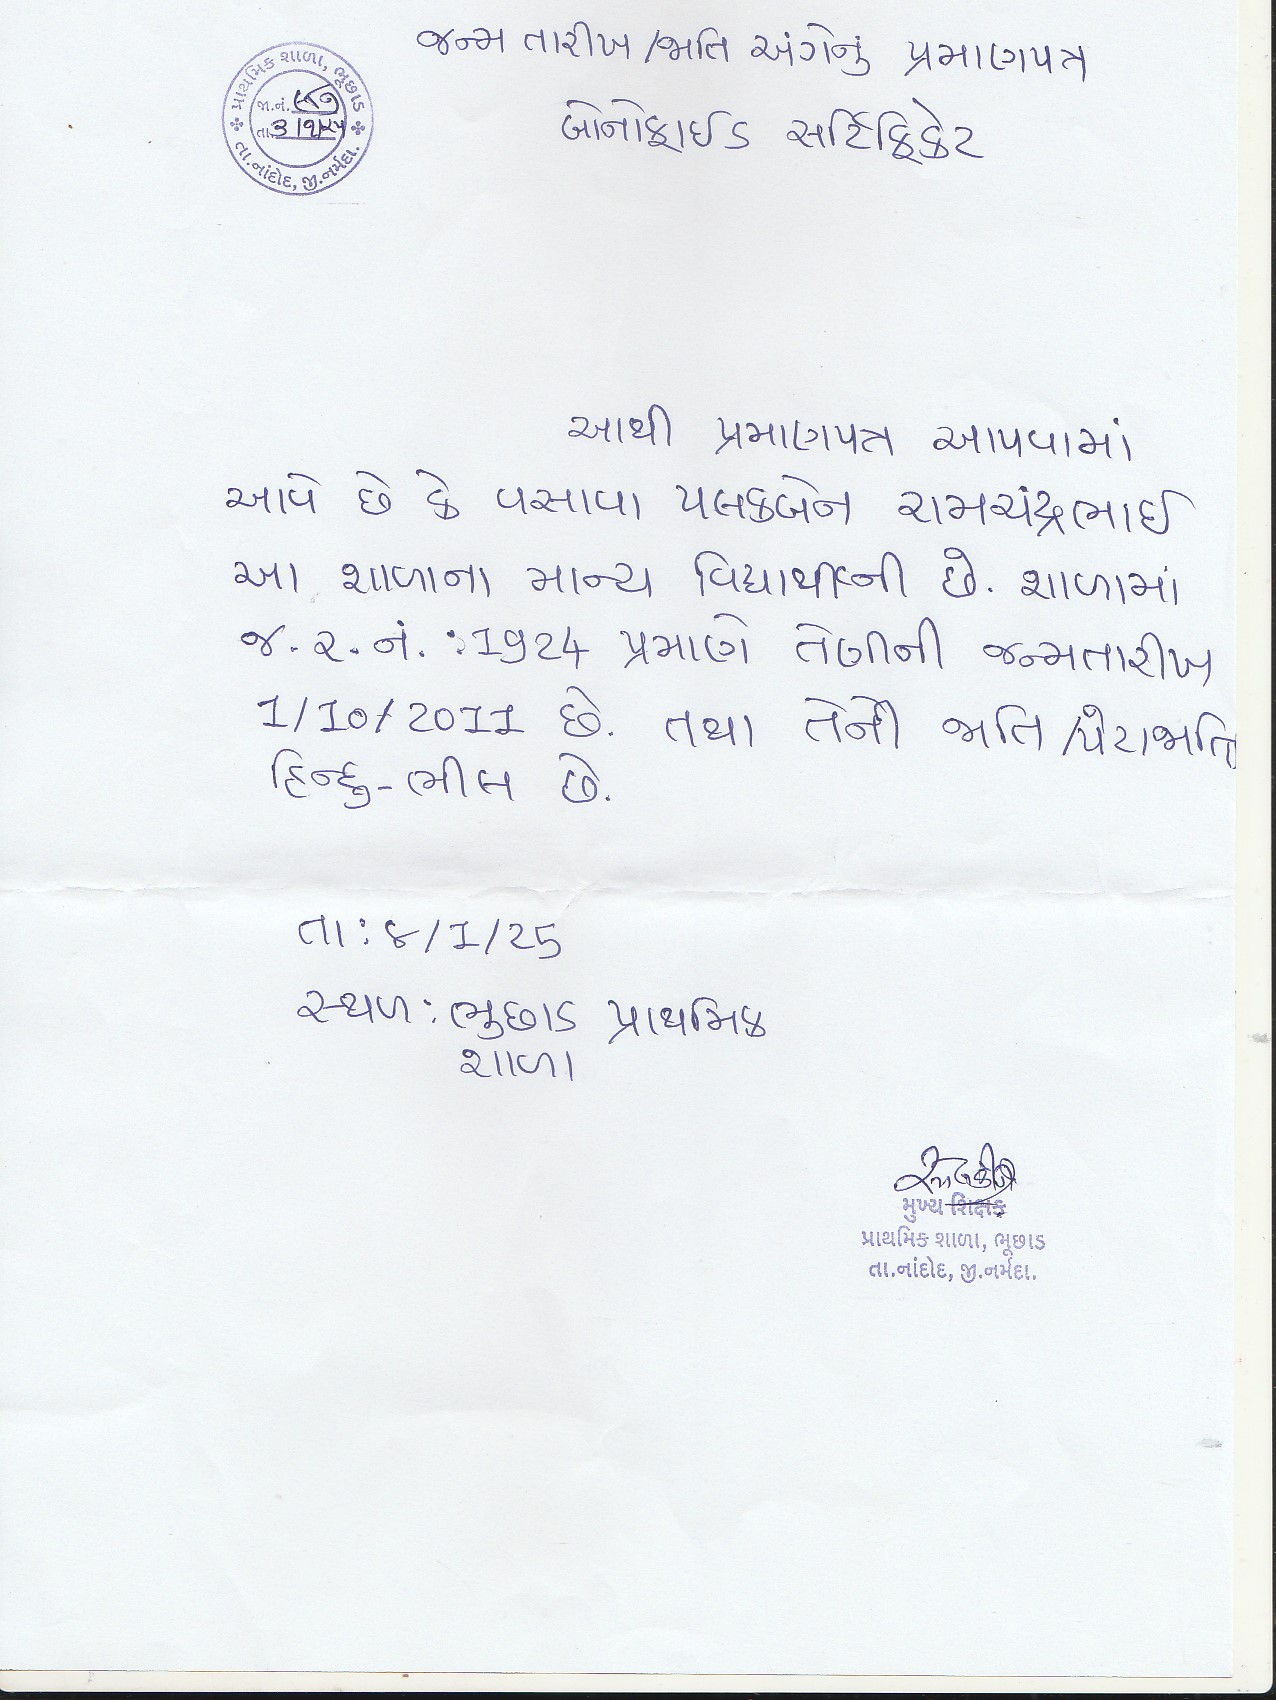 જન્મ તારીખ /જાતિ અંગેનું પ્રમાણપત્ર
બોનોફાઈડ સર્ટિફિકેટ
પ્રાથમિક શાળા, ભૂછાડ
જા.નં.
તા.
તા.નાંદોદ, જી.નર્મદા.
આથી પ્રમાણપત્ર આપવામાં
આવે છે કે વસાવા પલકબેન રામચંદ્રભાઈ
આ શાળાના માન્ય વિદ્યાર્થીની છે. શાળામાં
જ.ર.નં. :1924 પ્રમાણે તેણીની જન્મતારીખ
1/10/2011 છે. તથા તેની જાતિ /પેટાજાતિ
હિન્દુ-ભીલ છે.
તા:૪/1/25
સ્થળ: ભુછાડ પ્રાથમિક
શાળા
મુખ્ય શિક્ષક
પ્રાથમિક શાળા, ભૂછાડ
તા.નાંદોદ, જી.નર્મદા.